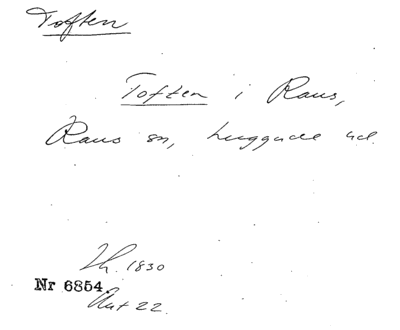 Toften
Toften i Raus,
Raus sn, Luggude hd.
Th. 1830
Nr 6854
Ant 22.